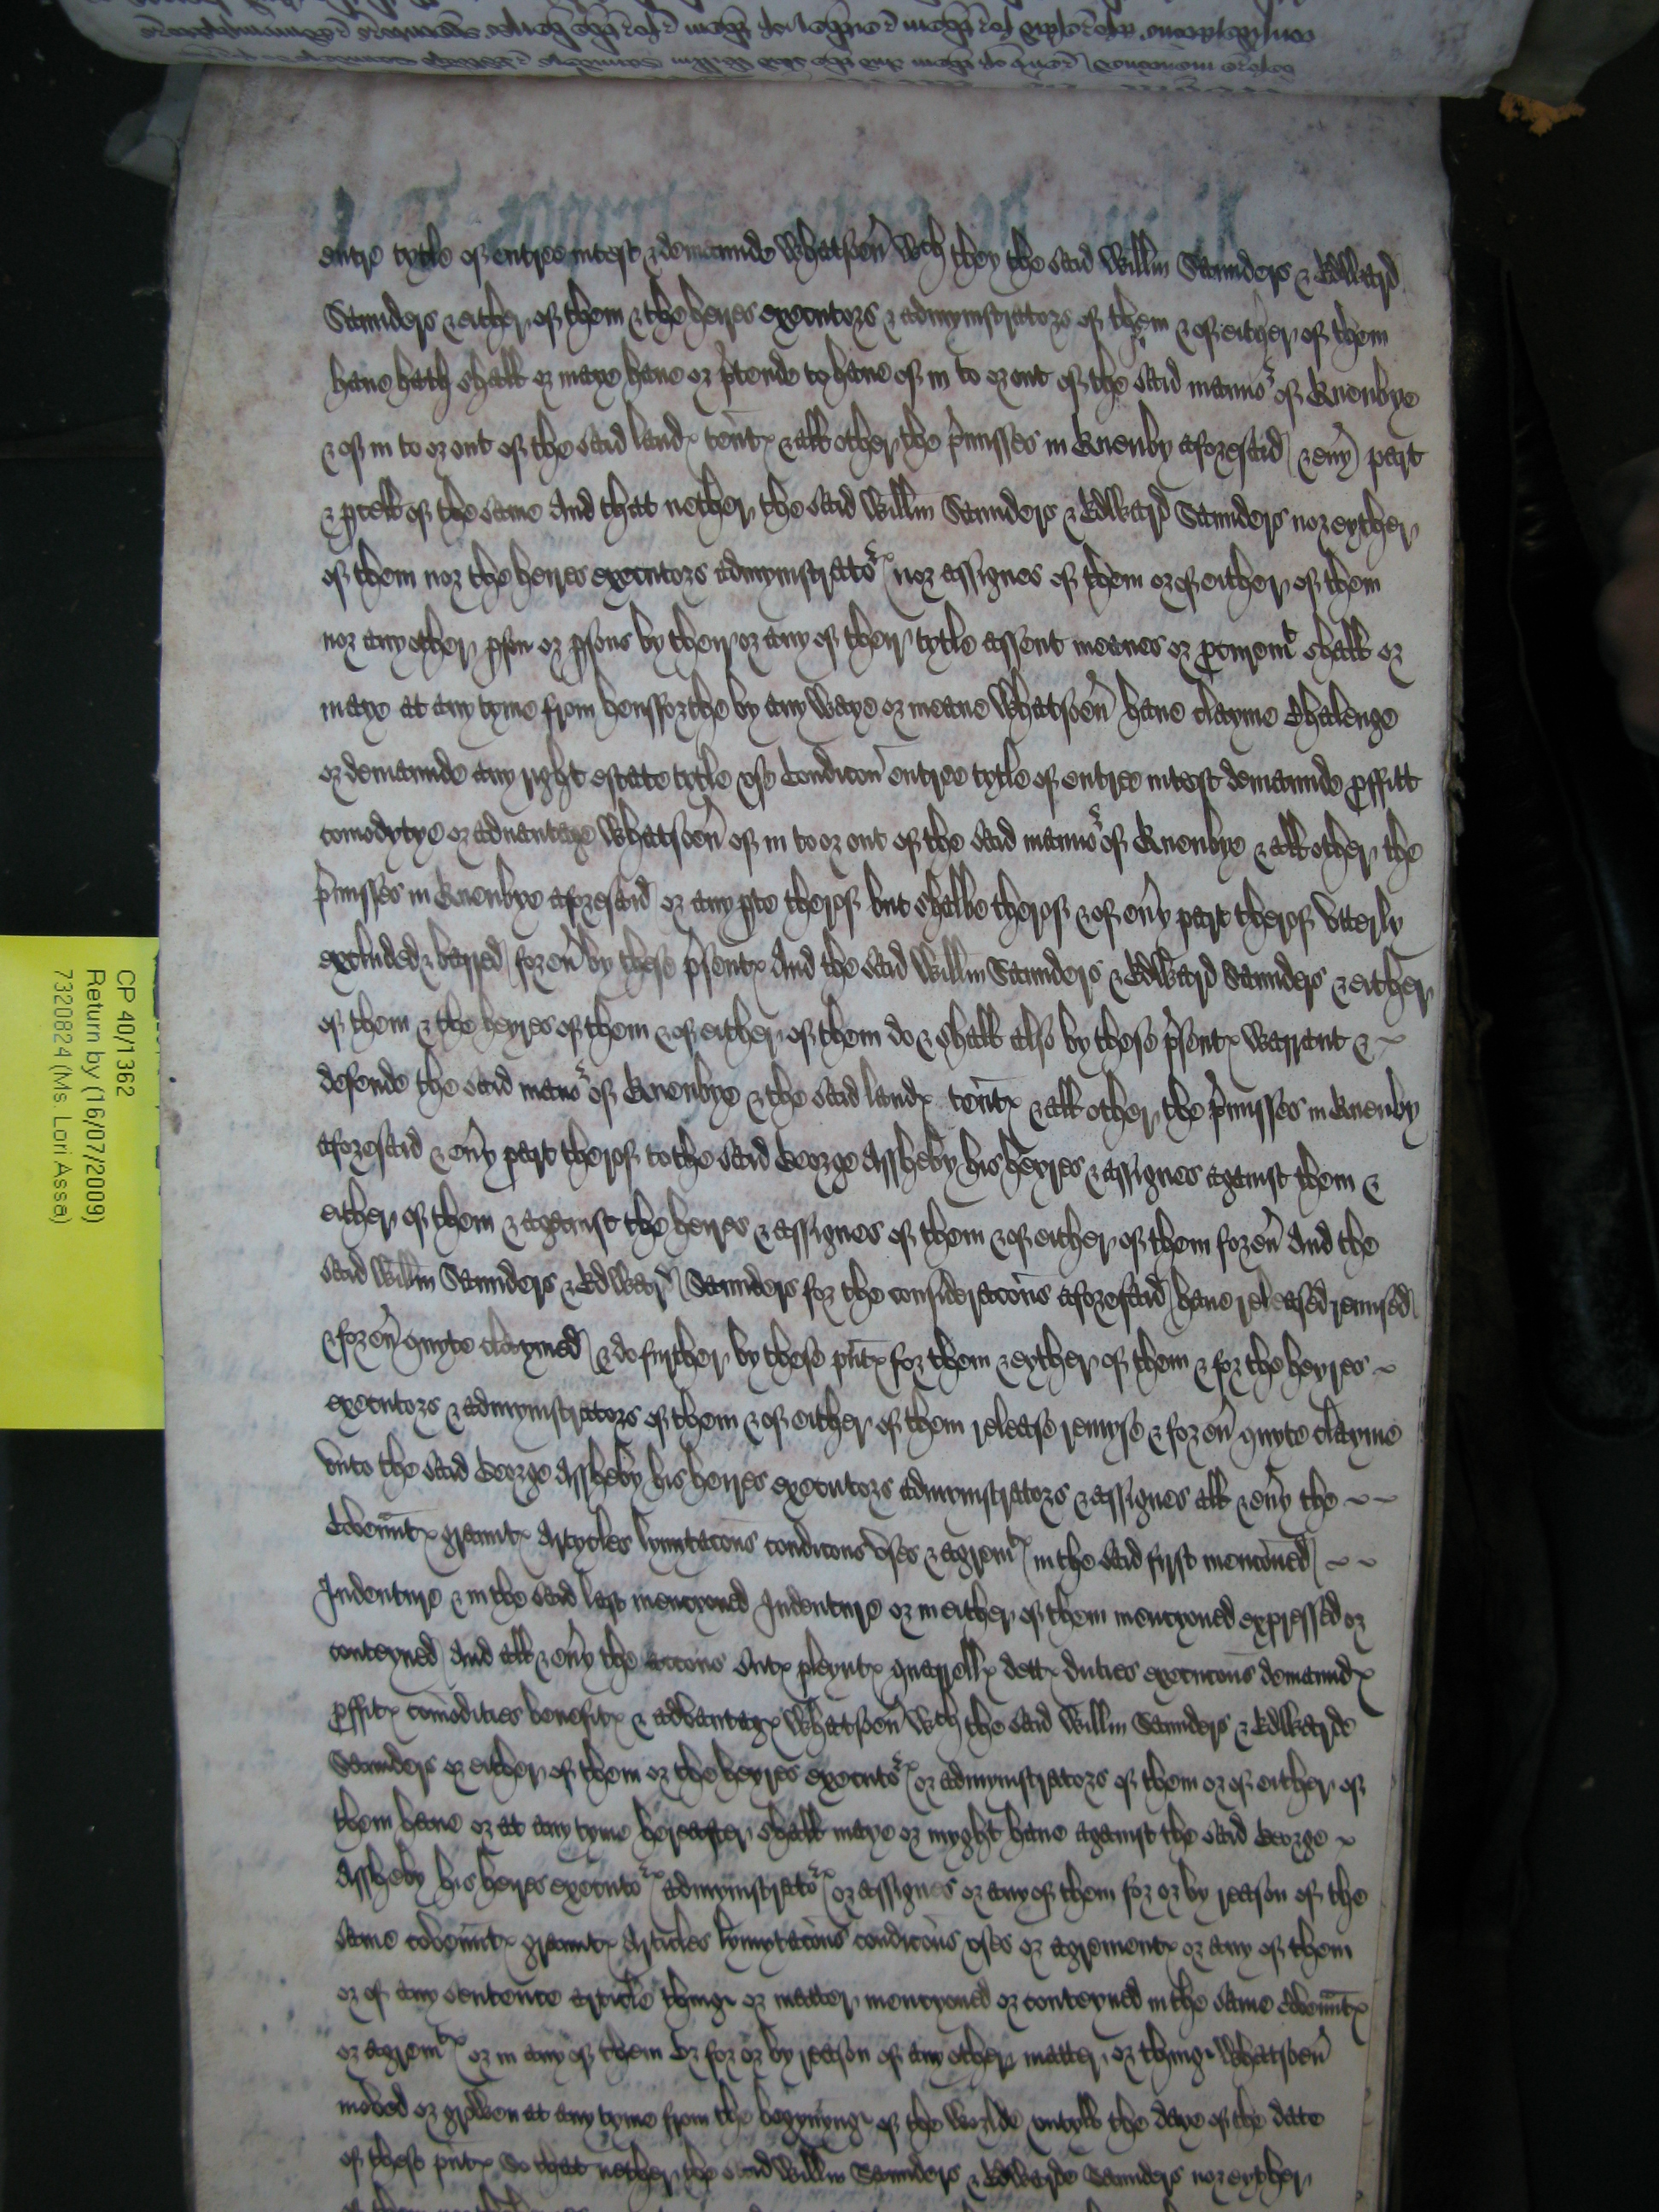 entre tytle of entree int'est & demaunde whatsoev' wch they the said Willm Saunders & Edward
Saunders & either of them & the heires executors & admynistrators of them & of either of them
have hath shall or maye have or p'tende to have of in to or out of the said mano' of Quenbye
& of in to or out of the said land tent & all other the p'misses in Quenby aforesaid & ev'y part
& p'cell of the same And that nether the said Willm Saunders & Edward Saunders nor eyther
of them nor the heires executors admynistrato' nor assignes of them or of either of them
nor any other p'son or p'sons by their or any of their tytle assent meanes or p'curemt shall or
maye at any tyme from hensforthe by any waye or meane whatsoev' have clayme chalenge
or demaunde any right estate tytle use condicon entree tytle of entree int'est demaunde p'ffitt
comodytye or advantage whatsoev' of in to or out of the said mano' of Quenbye & all other the
p'misses in Quenbye aforesaid or any p'te therof but shalbe therof & of ev'y part therof utterly
excluded & barred forev' by these p'sent And the said Willm Saunders & Edward Saunders & either
of them & the heyres of them & of either of them do & shall also by these p'sent warrant &
defende the said mano' of Quenbye & the said land tent & all other the p'misses in Quenby
aforesaid & ev'y part therof to the said George Assheby his heyres & assignes against them &
either of them & against the heires & assignes of them & of either of them forev' And the
said Willm Saunders & Edward Saunders for the consideracons aforesaid have released remised
& forev' quyte claymed & do further by these p'nt for them & eyther of them & for the heyres
executors & admynistrators of them & of either of them release remyse & forev' quyte clayme
unto the said George Assheby his heires executors admynistrators & assignes all & ev'y the
Covennt graunt Artycles lymitacons condicons uses & agremt in the said fyrst menconed
Indenture & in the said last mencyoned Indenture or in either of them mencyoned expressed or
conteyned And all & ev'y the accons sut pleynt quarrell dett duties execucons demaund
p'ffit comodities benefit & advantag whatsoev' wch the said Willm Saunders & Edwarde
Saunders or either of them or the heyres executo' or admynistrators of them or of either of
them have or at any tyme hereafter shall maye or myght have against the said George
Assheby his heires executo' admynistrato' or assignes or any of them for or by reason of the
same covennt graunt Articles lymytacons condicons uses or agrement or any of them
or of any sentence article thing or matter mencyoned or conteyned in the same Covennt
or agremt or in any of them Or for or by reason of any other matter or thing whatsoev'
moved or growen at any tyme from the begynyng of the worlde untyll the daye of the date
of these p'nt So that nether the said Willm Saunders & Edwarde Saunders nor eyther
CP 40/1362
Return by (16/07/2009)
7320824 (Ms. Lori Assa)